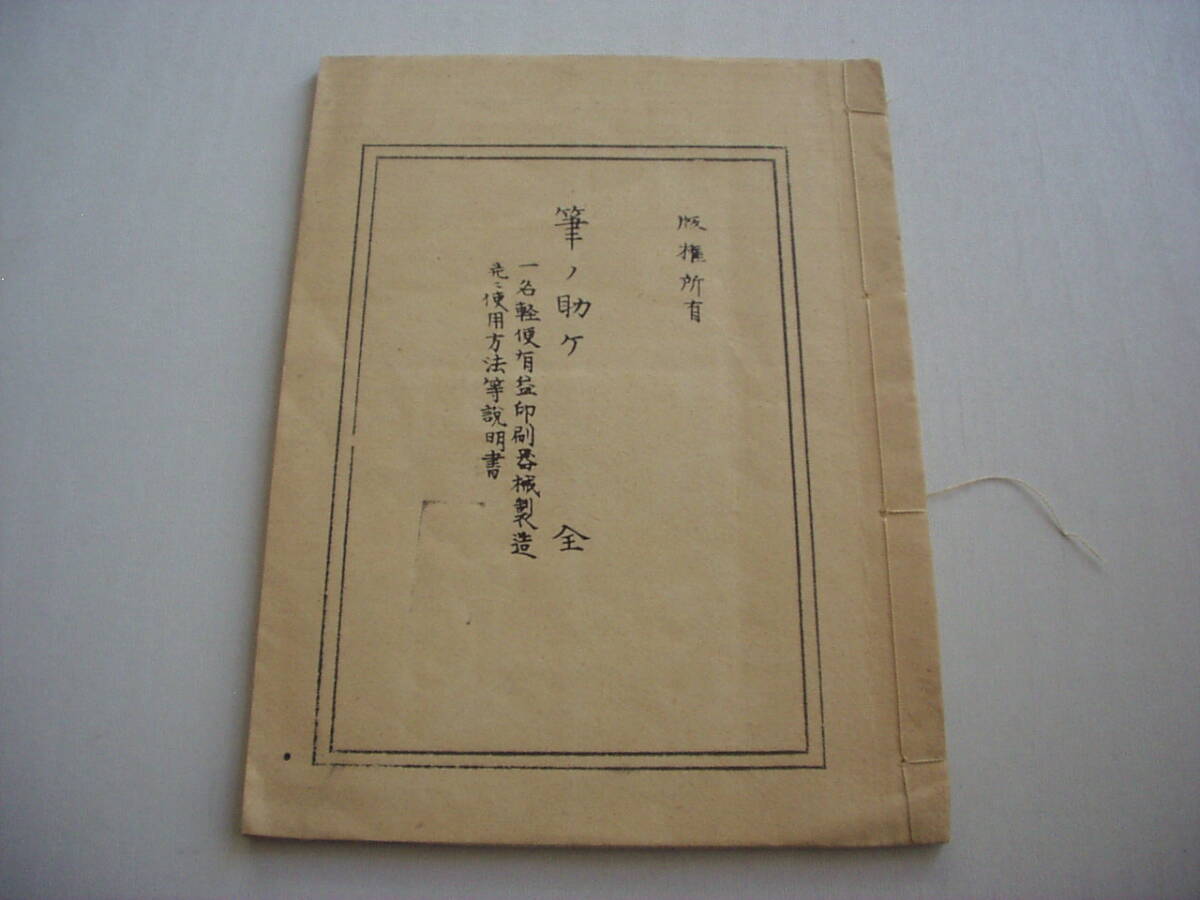 版権所有
筆ノ助ケ 全
一名軽便有益印刷器械製造
並ニ使用方法等説明書